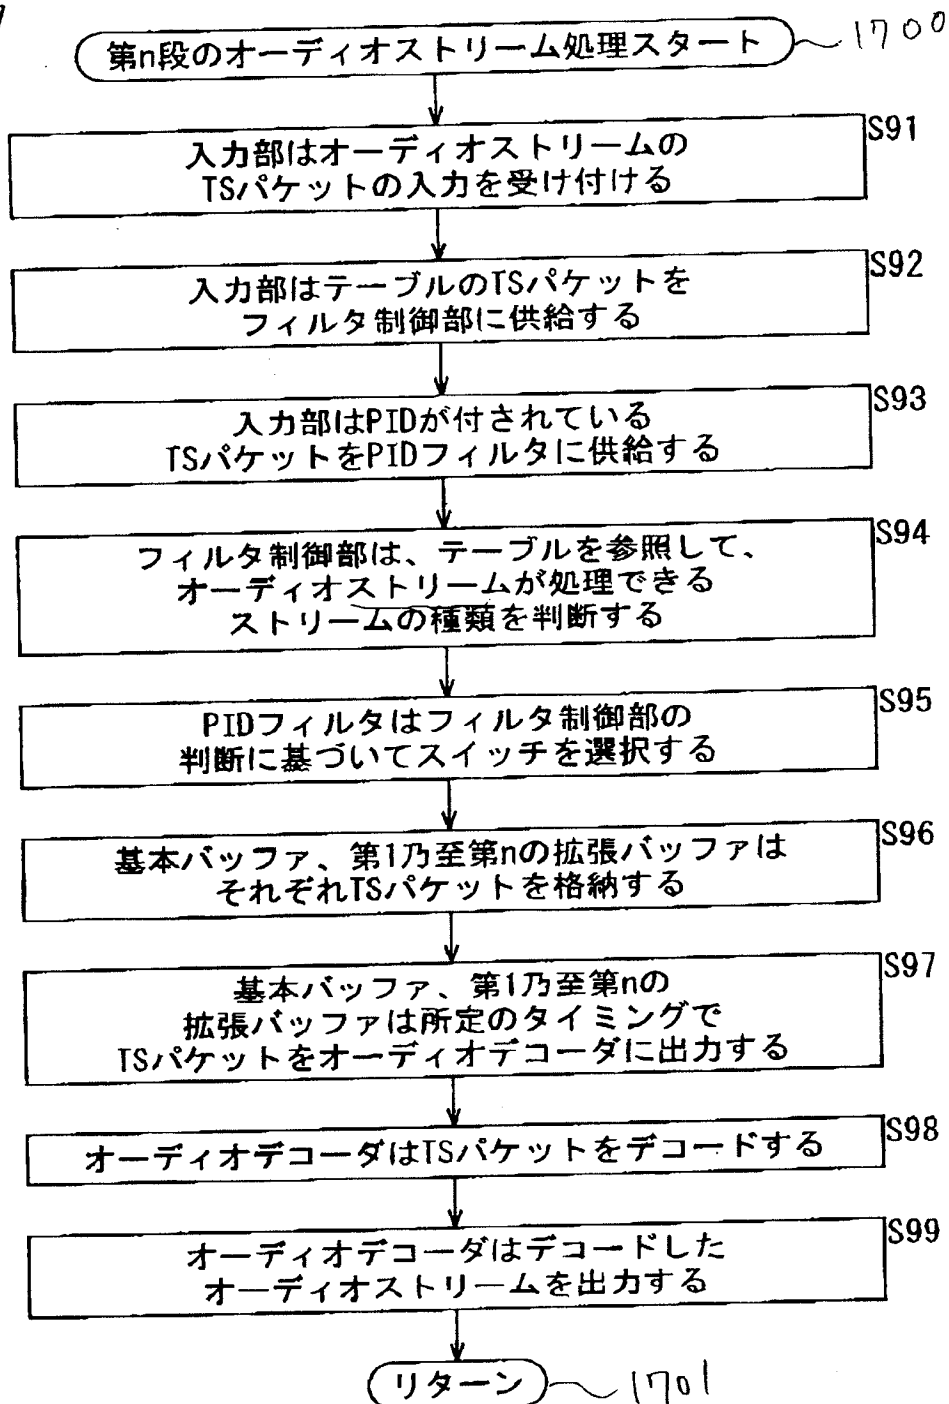 第n段のオーディオストリーム処理スタート
1700
S91
入力部はオーディオストリームの
TSパケットの入力を受け付ける
S92
入力部はテーブルのTSパケットを
フィルタ制御部に供給する
S93
入力部はPIDが付されている
TSパケットをPIDフィルタに供給する
S94
フィルタ制御部は、テーブルを参照して、
オーディオストリームが処理できる
ストリームの種類を判断する
S95
PIDフィルタはフィルタ制御部の
判断に基づいてスイッチを選択する
S96
基本バッファ、第1乃至第nの拡張バッファは
それぞれTSパケットを格納する
S97
基本バッファ、第1乃至第nの
拡張バッファは所定のタイミングで
TSパケットをオーディオデコーダに出力する
S98
オーディオデコーダはTSパケットをデコードする
S99
オーディオデコーダはデコードした
オーディオストリームを出力する
リターン
1701